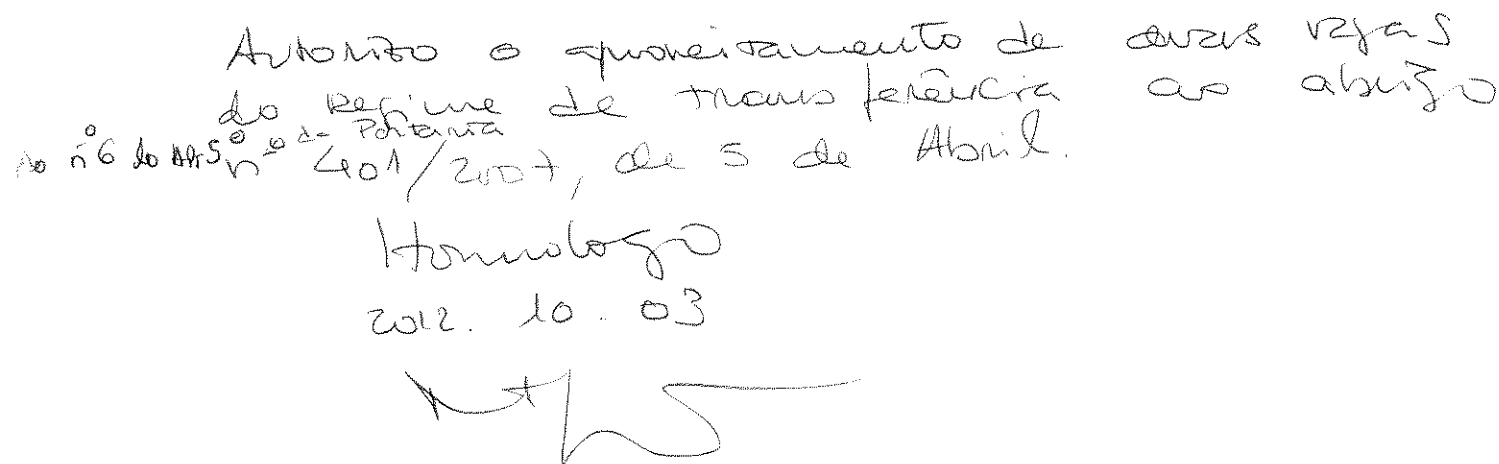 Autorizo o aproveitamento de duas vagas
do Regime de transferência ao abrigo
do nº 6 do Artº 5º da Portaria
nº 401/2007, de 5 de Abril.
Homologo
2012. 10. 03